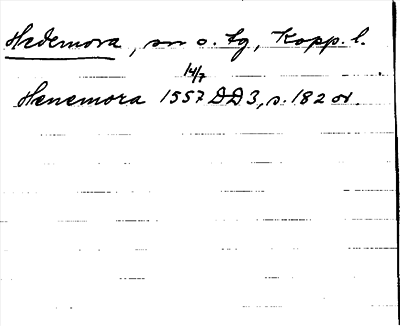 Hedemora, sn o. tg, Kopp. l.
14/7
Henemora 1557 DD 3, s. 182 or.